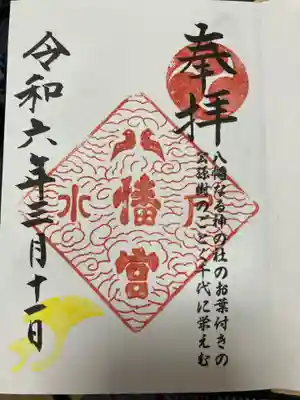 奉拝
八幡なる神の杜のお葉付きの
公孫樹のごとく千代に栄えむ
水戸
八幡宮
令和六年三月十一日